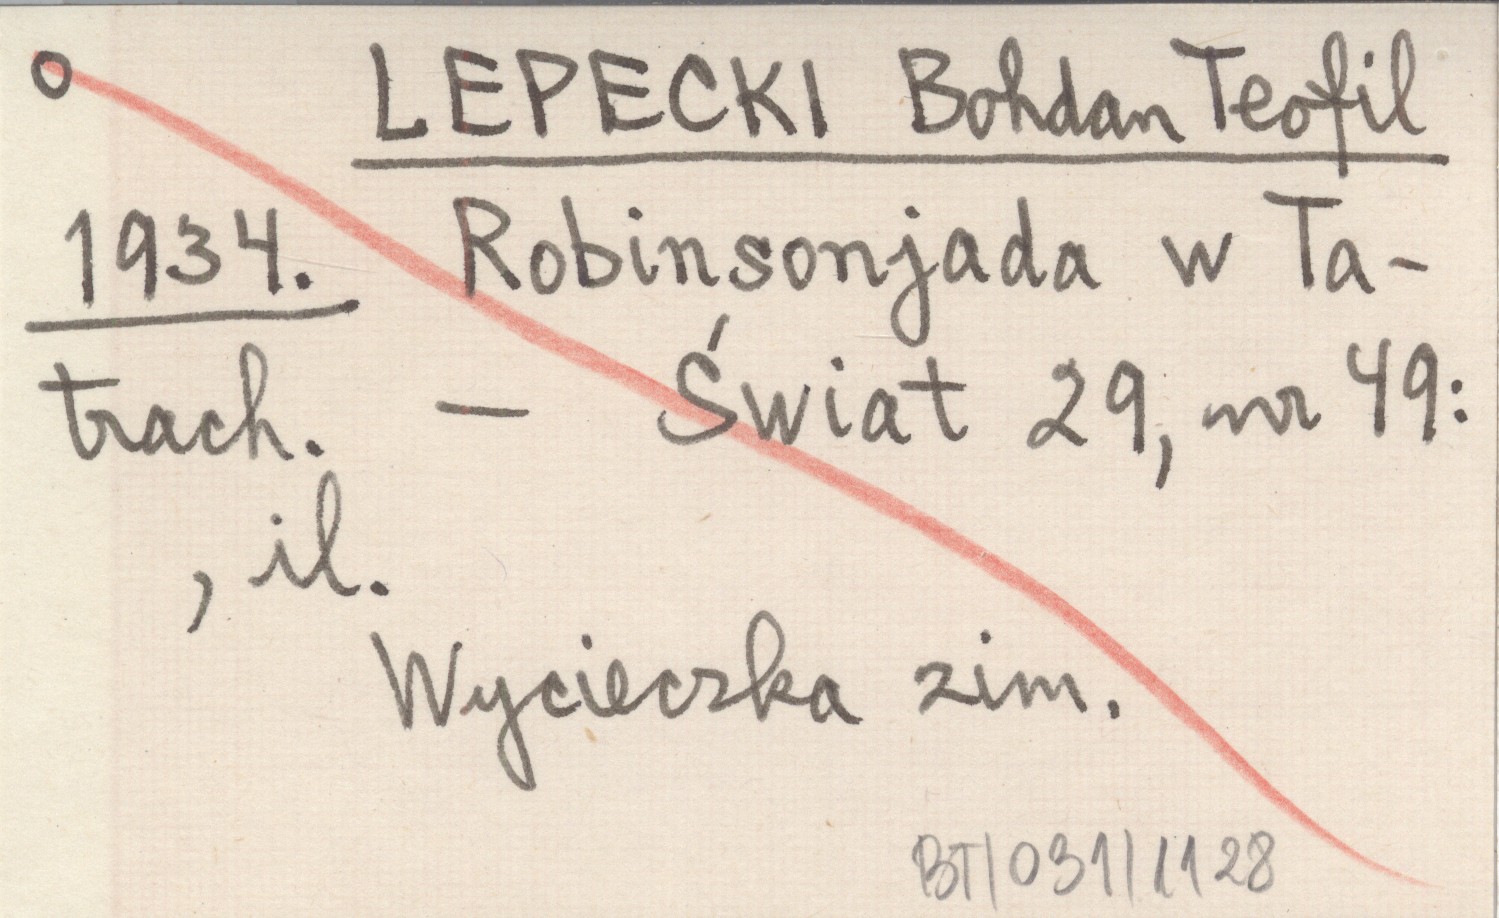 o LEPECKI Bohdan Teofil
1934. Robinsonjada w Ta-
trach. — Świat 29, nr 49:
, il.
Wycieczka zim.
BT/031/1128